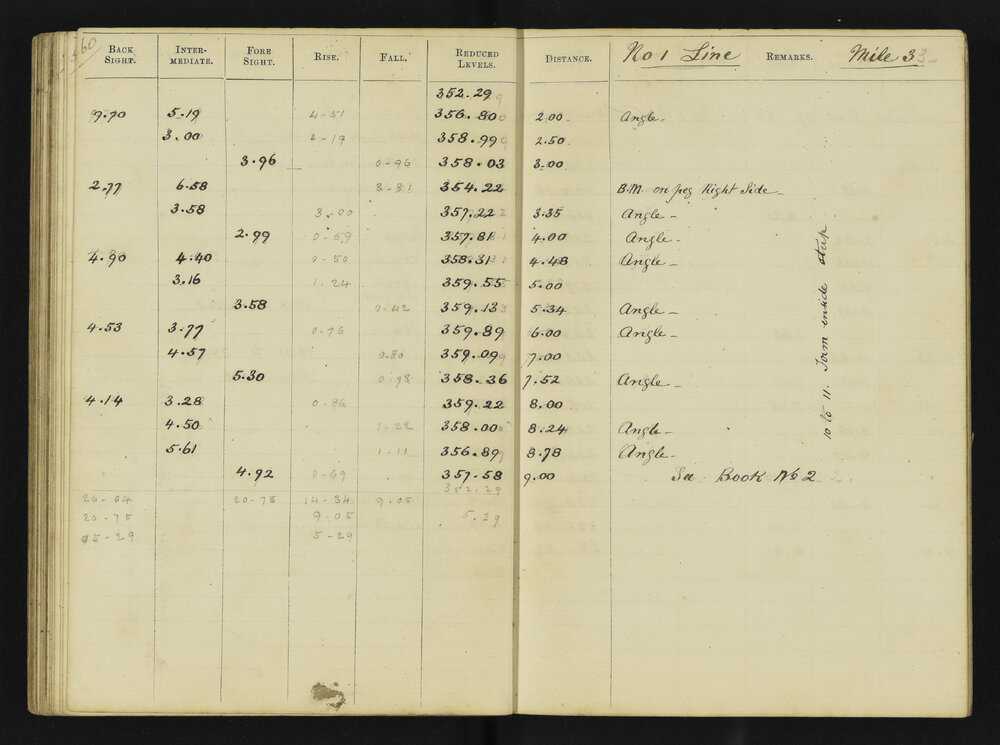 360
BACK SIGHT. INTERMEDIATE. FORE SIGHT. RISE. FALL. REDUCED LEVELS. DISTANCE. No 1 Line REMARKS. Mile 3
352.29
9.70 5.19 4-51 356.80 2.00 Angle
3.00 2-19 358.99 2.50
3.96 0-96 358.03 3.00
2.77 6.58 3-81 354.22 B.M. on peg Right Side
3.58 3.00 357.22 3.35 Angle
2.99 0-59 357.81 4.00 Angle
4.90 4.40 0-50 358.31 4.48 Angle
3.16 1-24 359.55 5.00
3.58 0-42 359.13 5.34 Angle
4.53 3.77 0-76 359.89 6.00 Angle
4.57 0-80 359.09 7.00
5.30 0-73 358.36 7.52 Angle
4.14 3.28 0-86 359.22 8.00
4.50 1-22 358.00 8.24 Angle
5.61 1-11 356.89 8.78 Angle
4.92 0-69 357.58 9.00 See Book No 2
352.29
26-04 20-75 14-34 9.05
20-75 9.05 5.29
05-29 5-29
10 to 11. inside